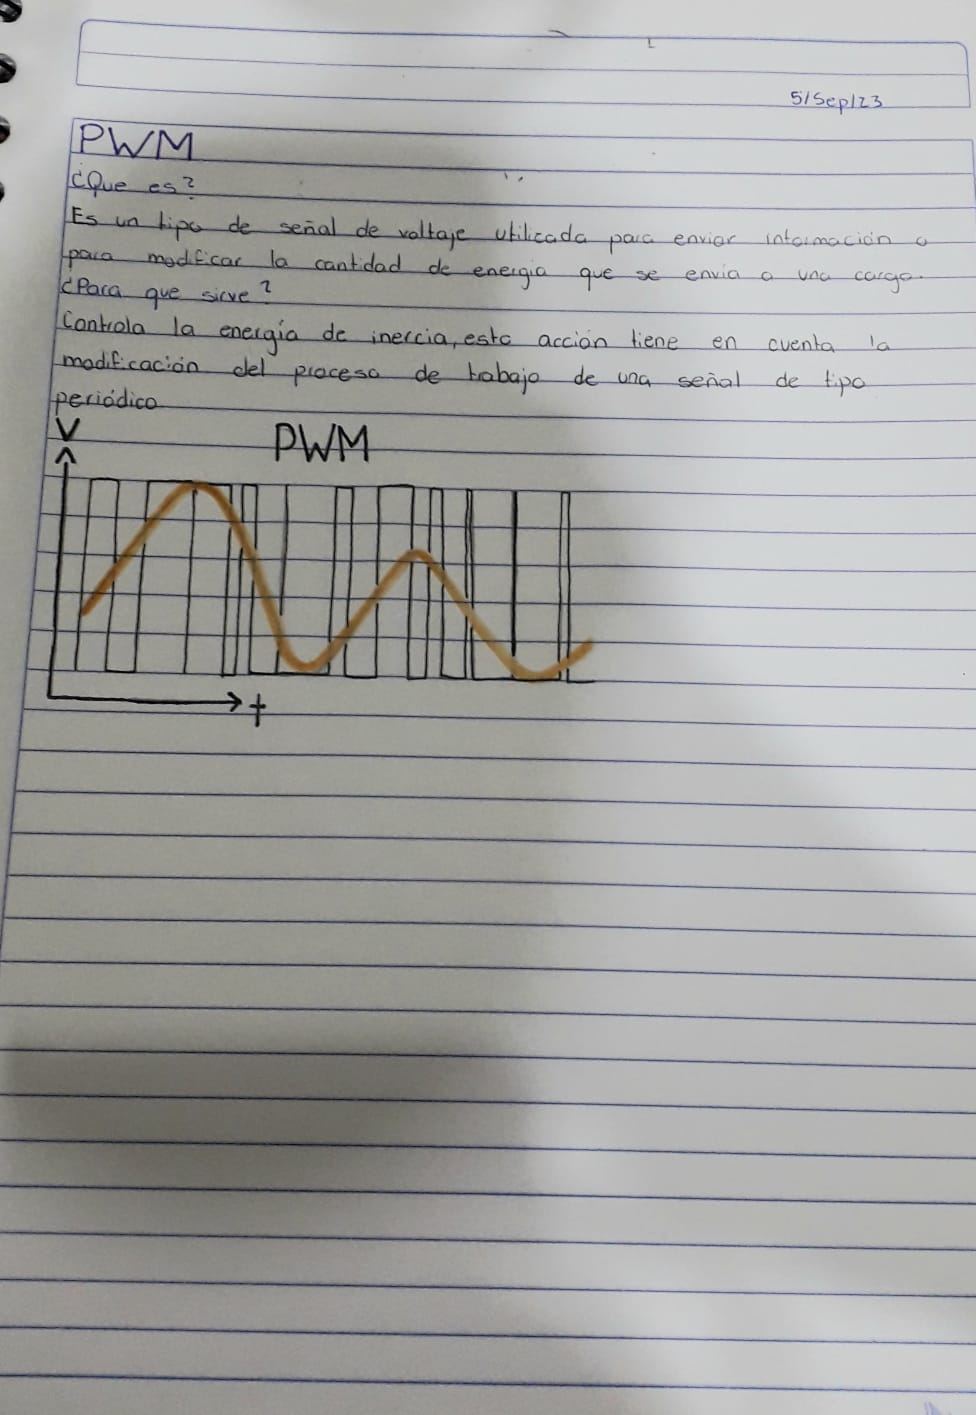 5/Sep/23
PWM
¿Que es?
Es un tipo de señal de voltaje utilizada para enviar información o
para modificar la cantidad de energia que se envia a una carga.
¿Para que sirve?
Controla la energía de inercia, esta acción tiene en cuenta la
modificación del proceso de trabajo de una señal de tipo
periódico
V
PWM
t